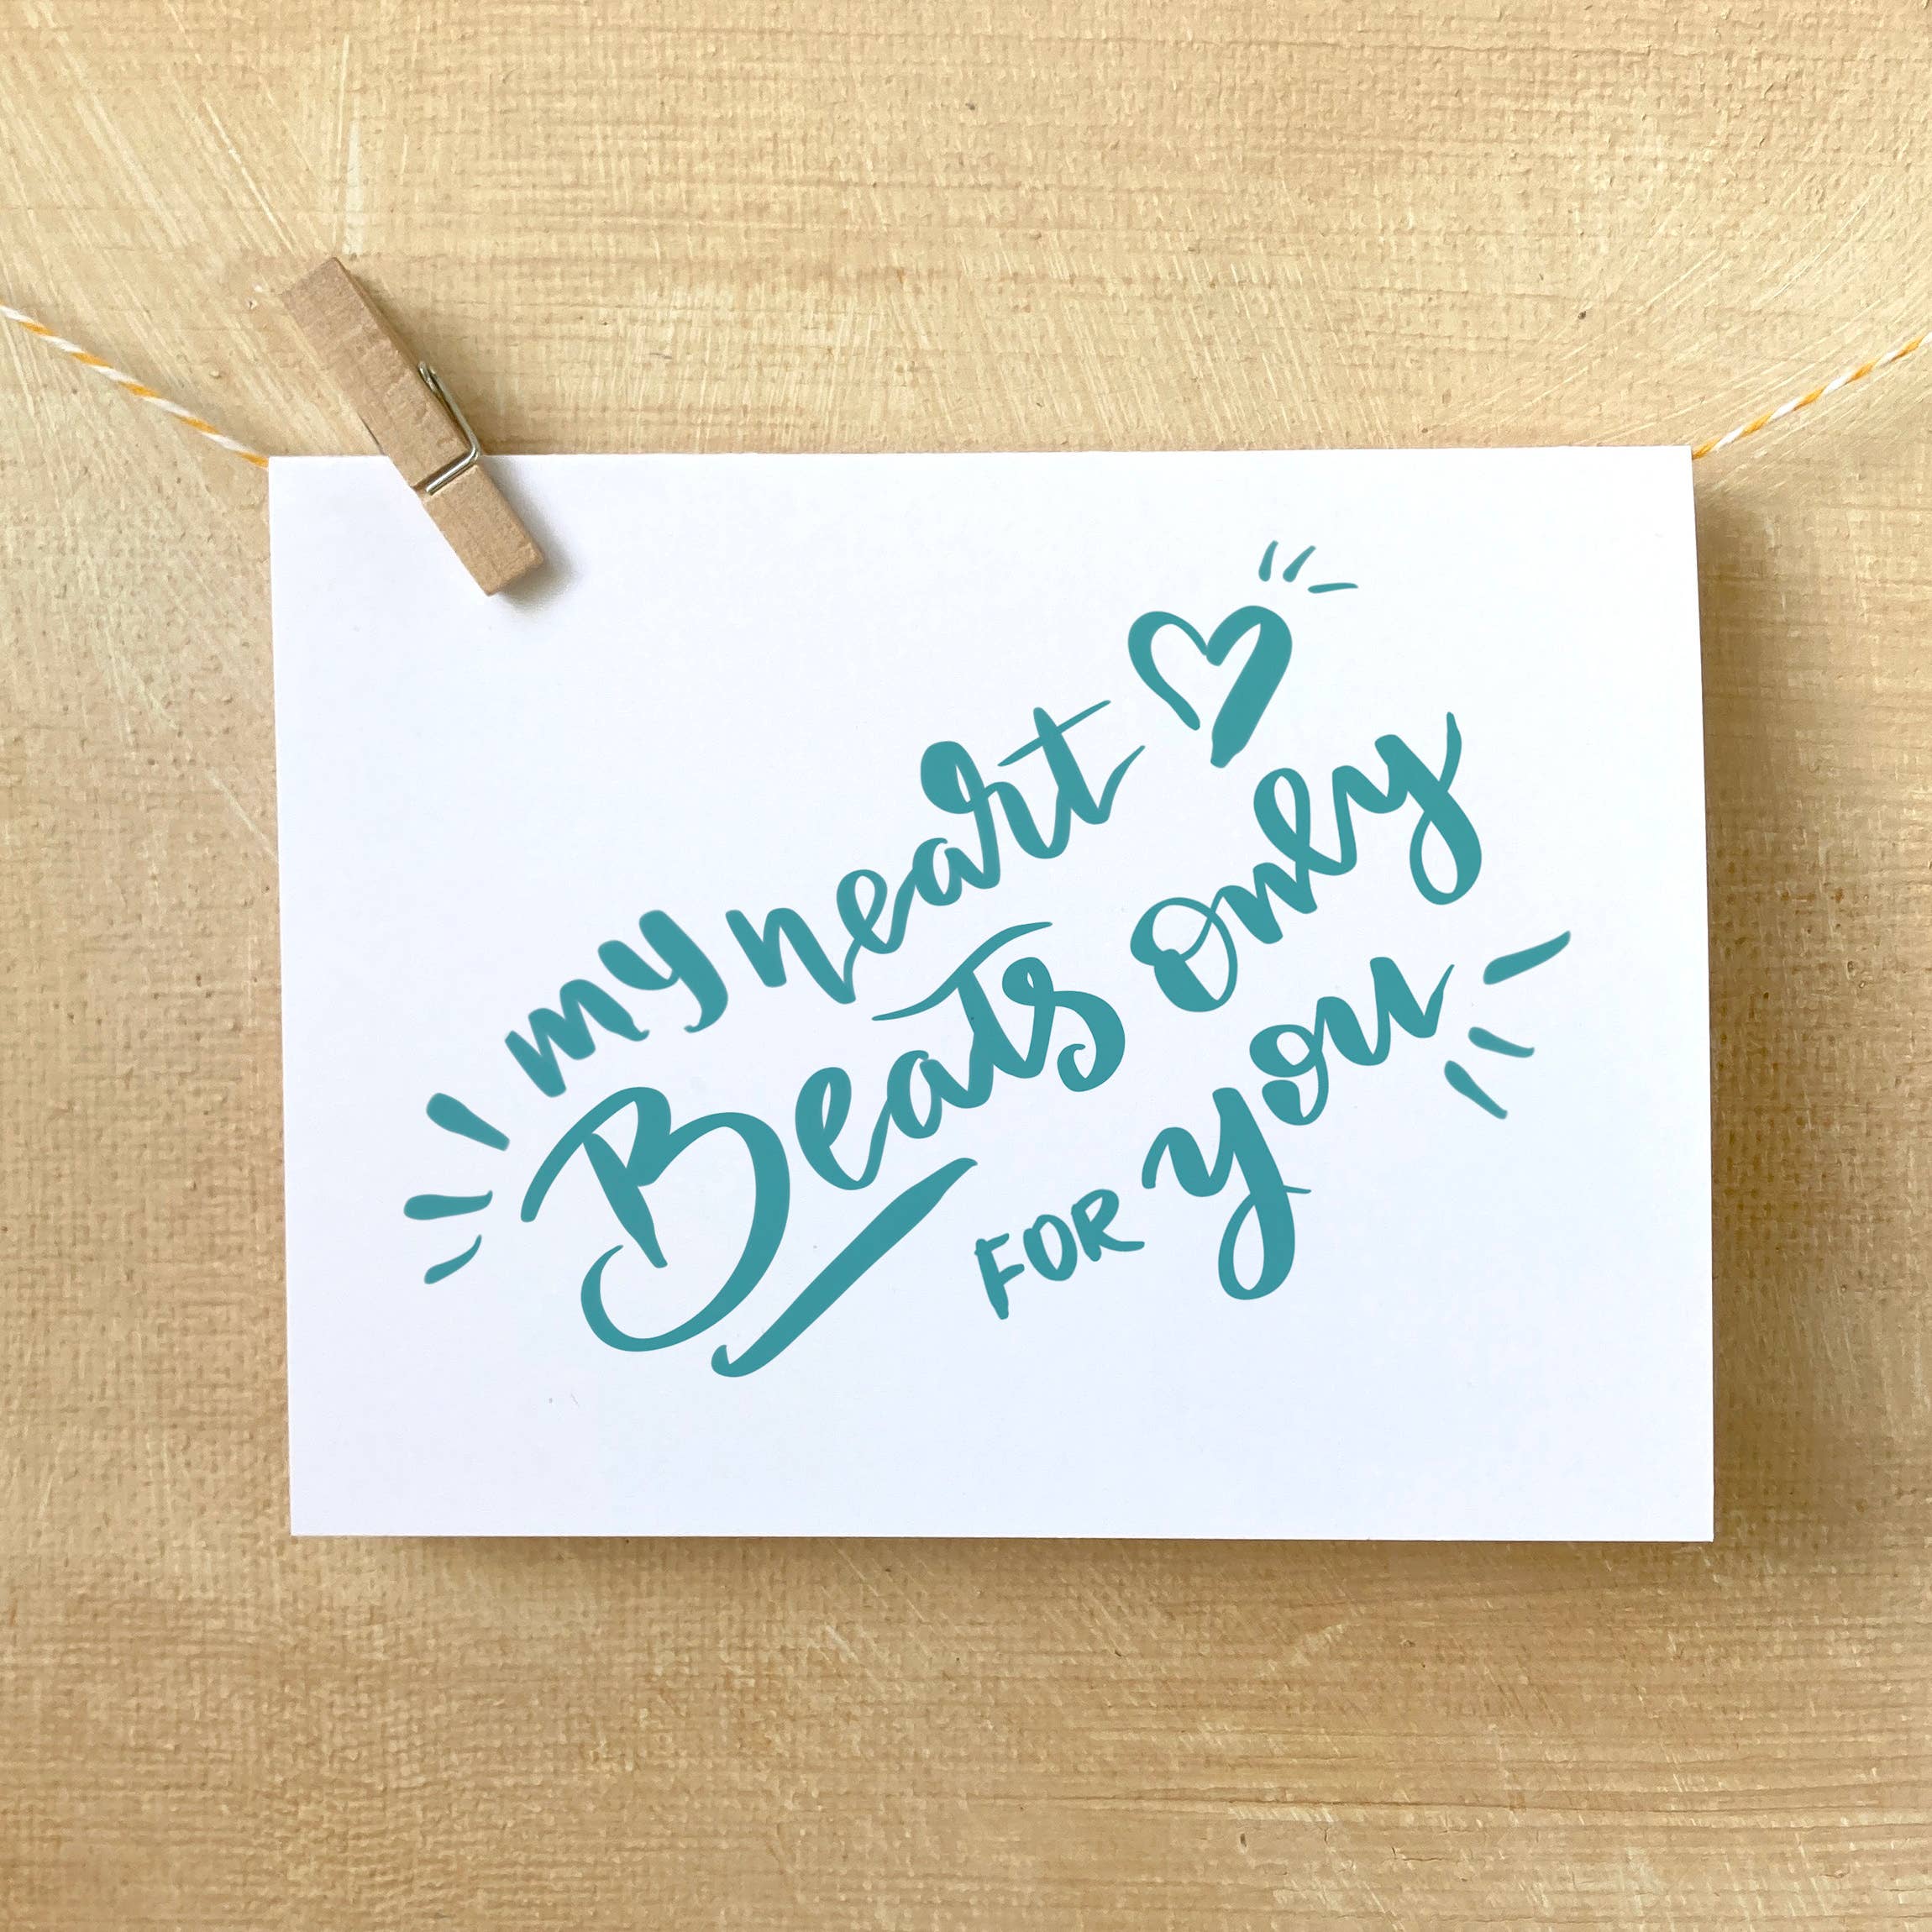 my heart
Beats only
FOR you